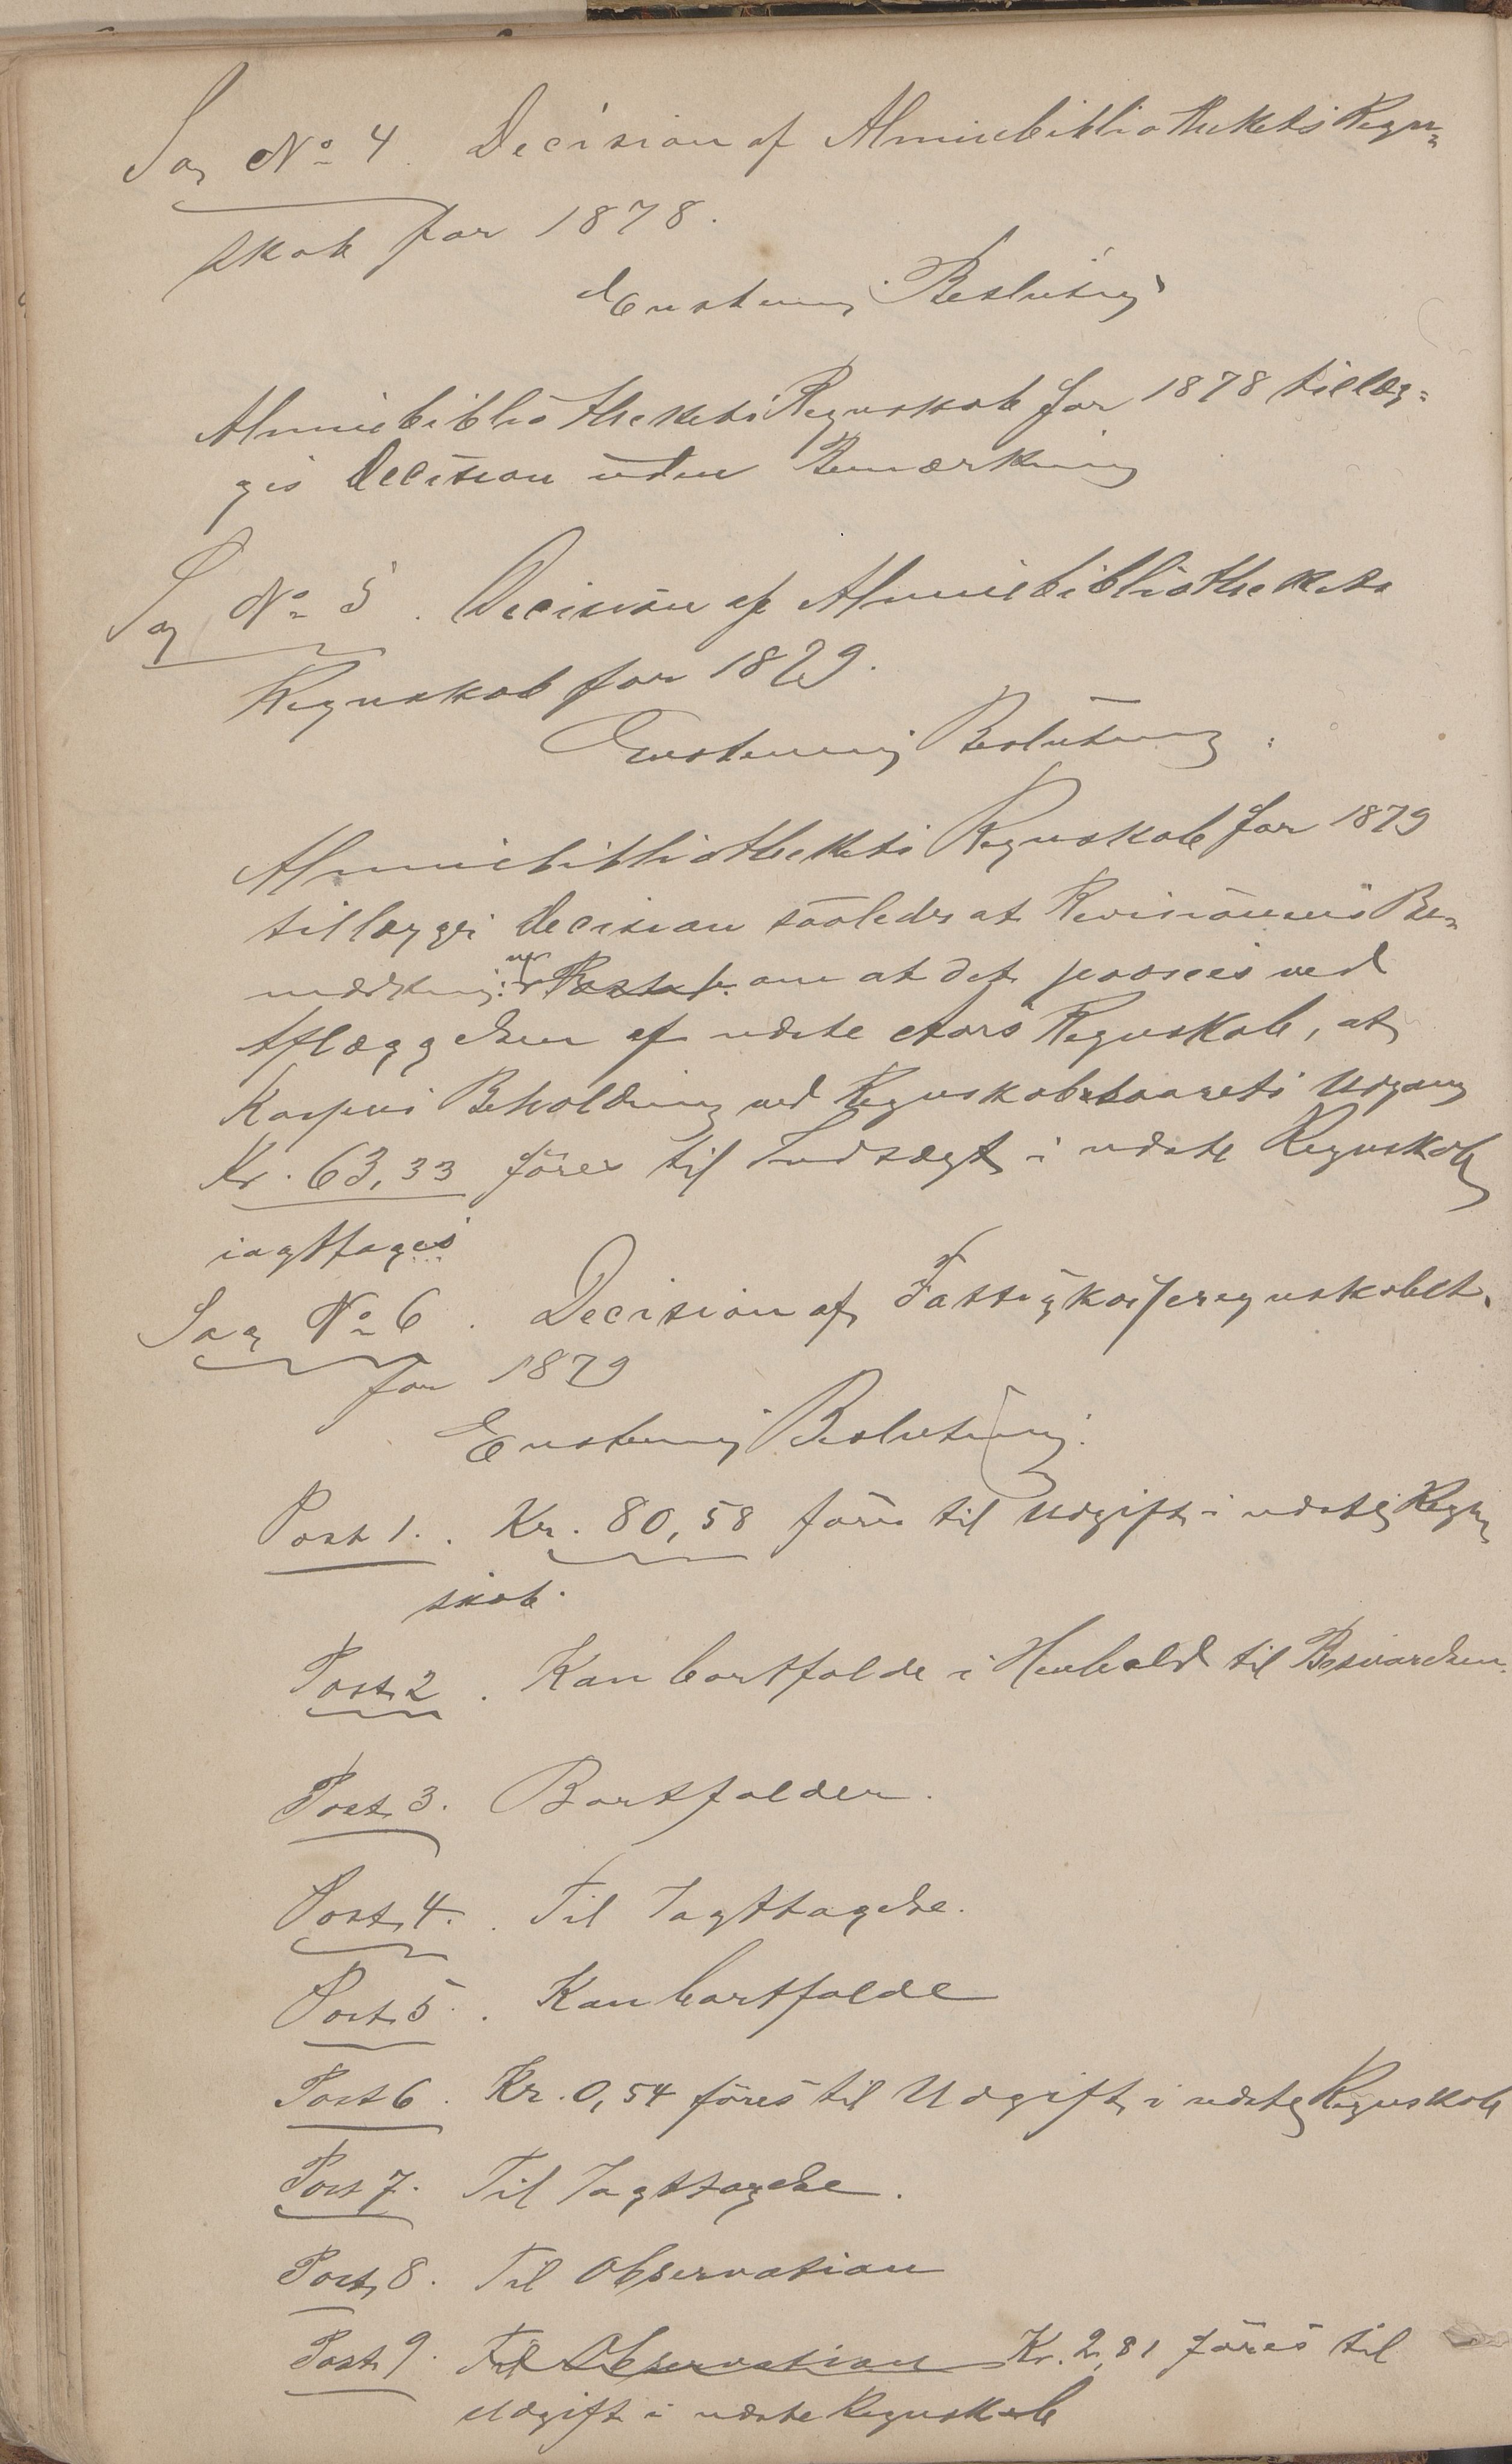 Sag No 4. Decision af Almuebibliothekets Regn-
skab for 1878.
Enstemmig Beslutning
Almuebibliothekets Regnskab for 1878 tillæg-
ges Decision uden Bemærkning
Sag No 5. Decision af Almuebibliothekets
Regnskab for 1879.
Enstemmig Beslutning:
Almuebibliothekets Regnskab for 1879
tillægges Decision saaledes at Revisionens Be-
mærkning om at det paasees ved
Aflæggelsen af næste Aars Regnskab, at
Kassens Beholdning ved Regnskabsaarets Udgang
Kr. 63,33 föres til Indtægt i næste Regnskab
iagttages
Sag No 6. Decision af Fattigkasseregnskabet
for 1879
Enstemmig Beslutning.
Post 1. Kr. 80,58 föres til Udgift i næste Regn-
skab.
Post 2. Kan bortfalde i Henhold til Besvarelsen.
Post 3. Bortfalder.
Post 4. Til Iagttagelse.
Post 5. Kan bortfalde
Post 6. Kr. 0,54 föres til Udgift i næste Regnskab
Post 7. Til Iagttagelse.
Post 8. Til Observation
Post 9. Til Observation Kr. 2,81 föres til
Udgift i næste Regnskab